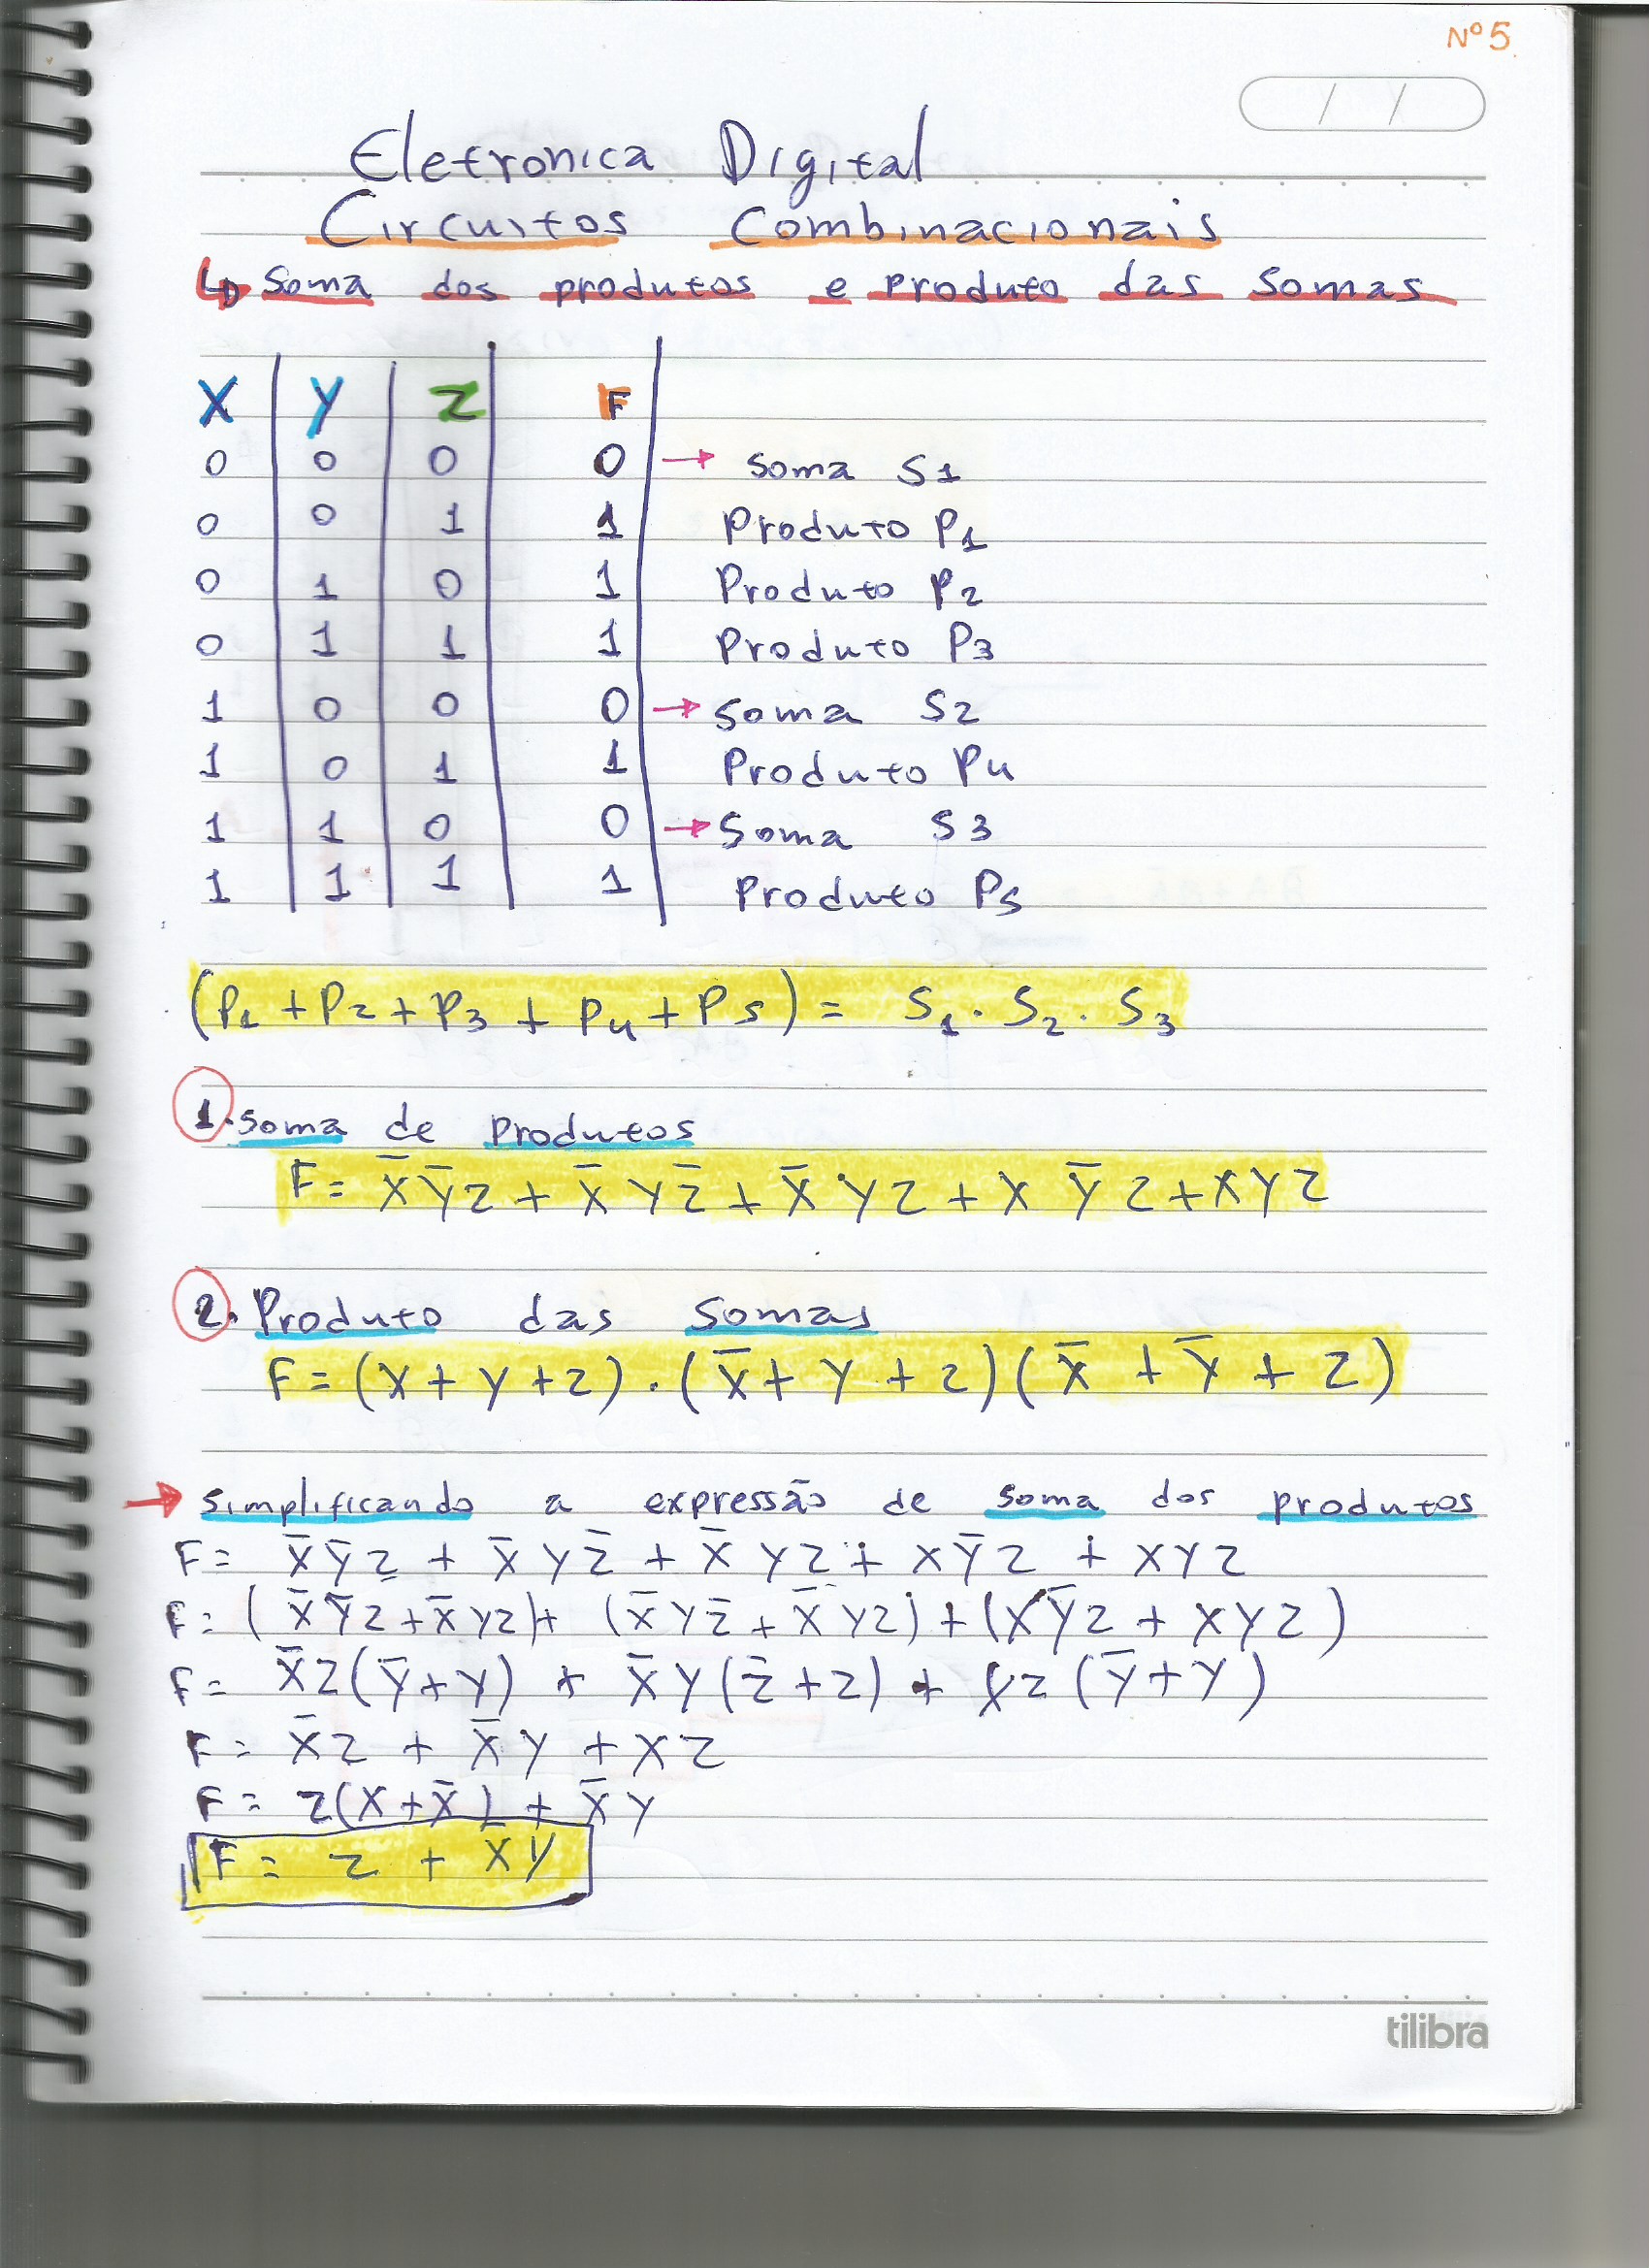 Nº 5
/ /
Eletronica Digital
Circuitos Combinacionais
↳ Soma dos produtos e produto das Somas
X Y Z F
0 0 0 0 → Soma S1
0 0 1 1 Produto P1
0 1 0 1 Produto P2
0 1 1 1 Produto P3
1 0 0 0 → Soma S2
1 0 1 1 Produto P4
1 1 0 0 → Soma S3
1 1 1 1 Produto P5
(P1 + P2 + P3 + P4 + P5) = S1 · S2 · S3
1. Soma de Produtos
F = X̅Y̅Z + X̅YZ̅ + X̅YZ + XY̅Z + XYZ
2. Produto das Somas
F = (X + Y + Z) . (X̅ + Y + Z)(X̅ + Y̅ + Z)
→ Simplificando a expressão de Soma dos produtos
F = X̅Y̅Z + X̅YZ̅ + X̅YZ + XY̅Z + XYZ
F = (X̅Y̅Z + X̅YZ) + (X̅YZ̅ + X̅YZ) + (XY̅Z + XYZ)
F = X̅Z(Y̅ + Y) + X̅Y(Z̅ + Z) + XZ(Y̅ + Y)
F = X̅Z + X̅Y + XZ
F = Z(X + X̅) + X̅Y
F = Z + X̅Y
tilibra